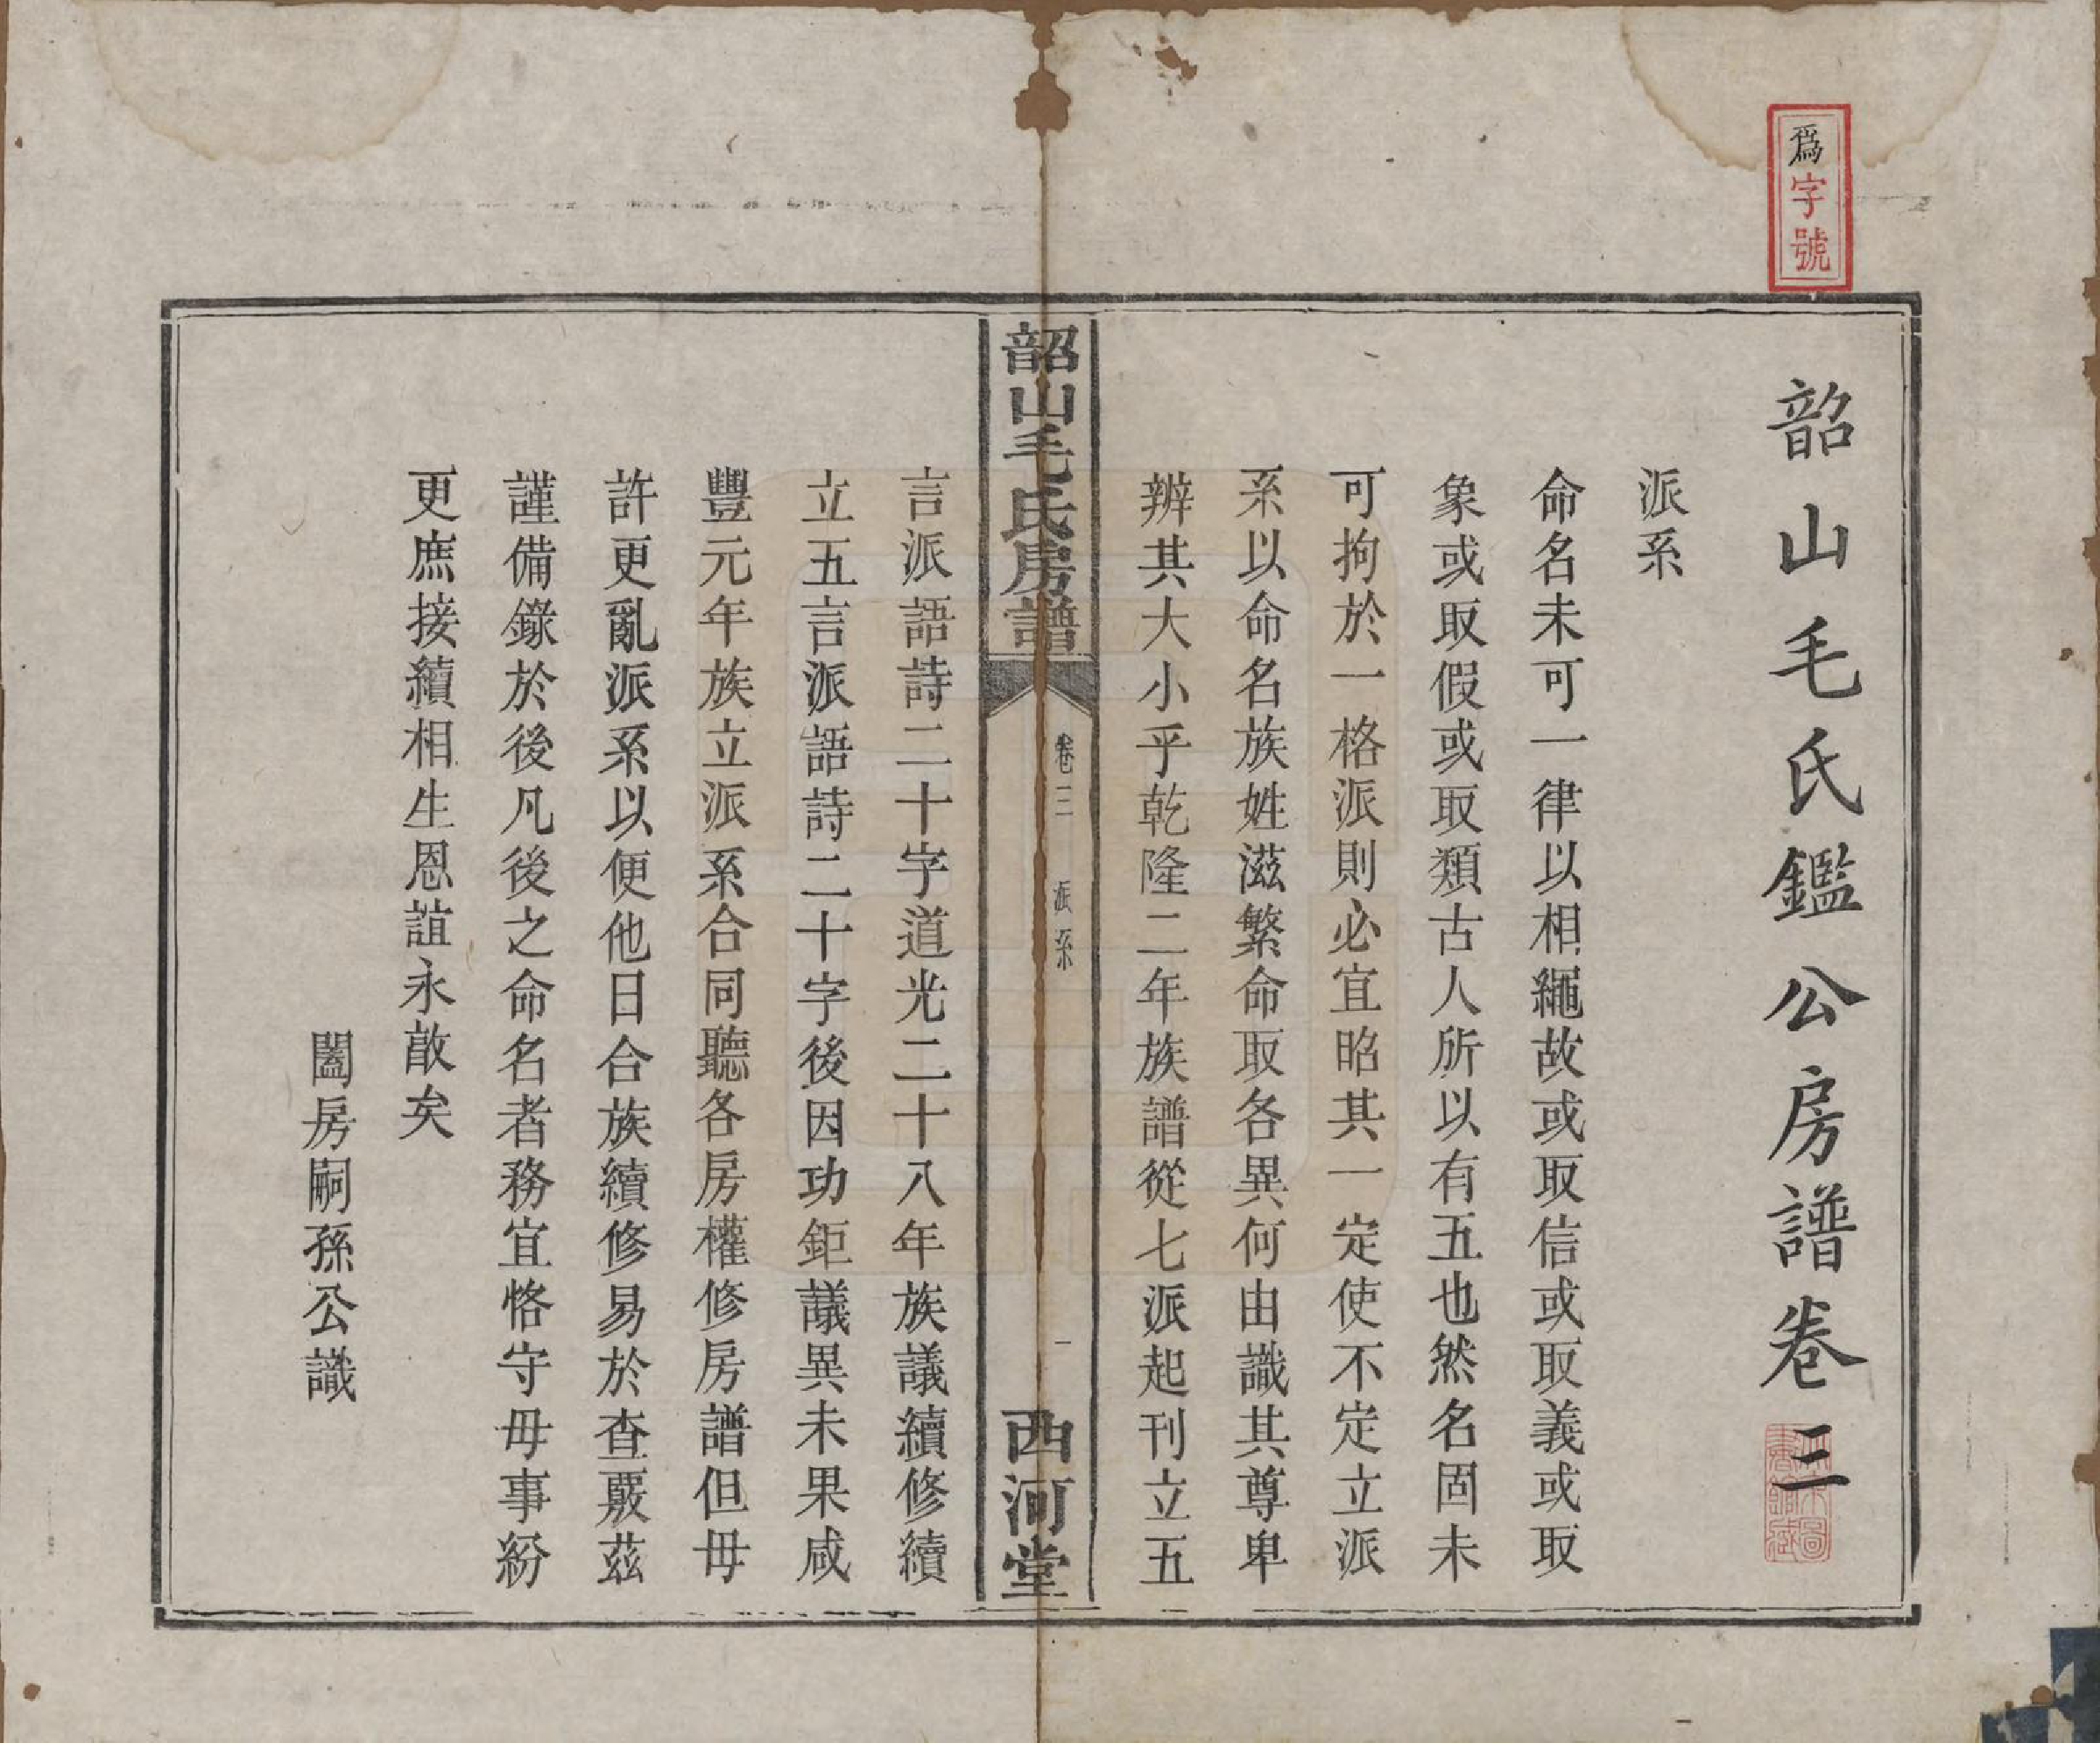 為字號
韶山毛氏鑑公房譜卷三
派系
命名未可一律以相繩故或取信或取義或取
象或取假或取類古人所以有五也然名固未
可拘於一格派則必宜昭其一定使不定立派
系以命名族姓滋繁命取各異何由識其尊卑
辨其大小乎乾隆二年族譜從七派起刊立五
韶山毛氏房譜
卷三 派系
一
西河堂
言派語詩二十字道光二十八年族議續修續
立五言派語詩二十字後因功鉅議異未果咸
豐元年族立派系合同聽各房權修房譜但毋
許更亂派系以便他日合族續修易於查覈茲
謹備錄於後凡後之命名者務宜恪守毋事紛
更庶接續相生恩誼永敢矣
闔房嗣孫公識